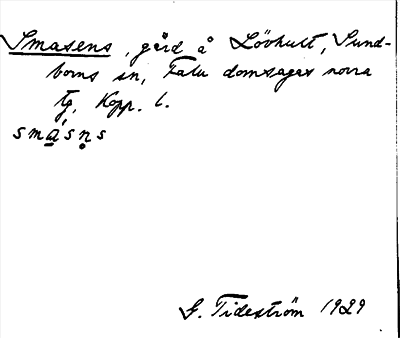 Smasens, gård å Lövhult, Sund-
borns sn, Falu domsagas norra
tg, Kopp. l.
smásn̥s
G. Tideström 1929